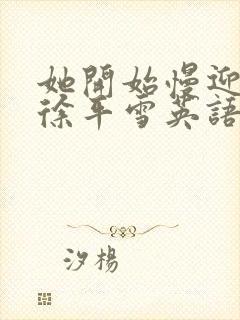 她開始慢迎
徐平雪英語
汐楊